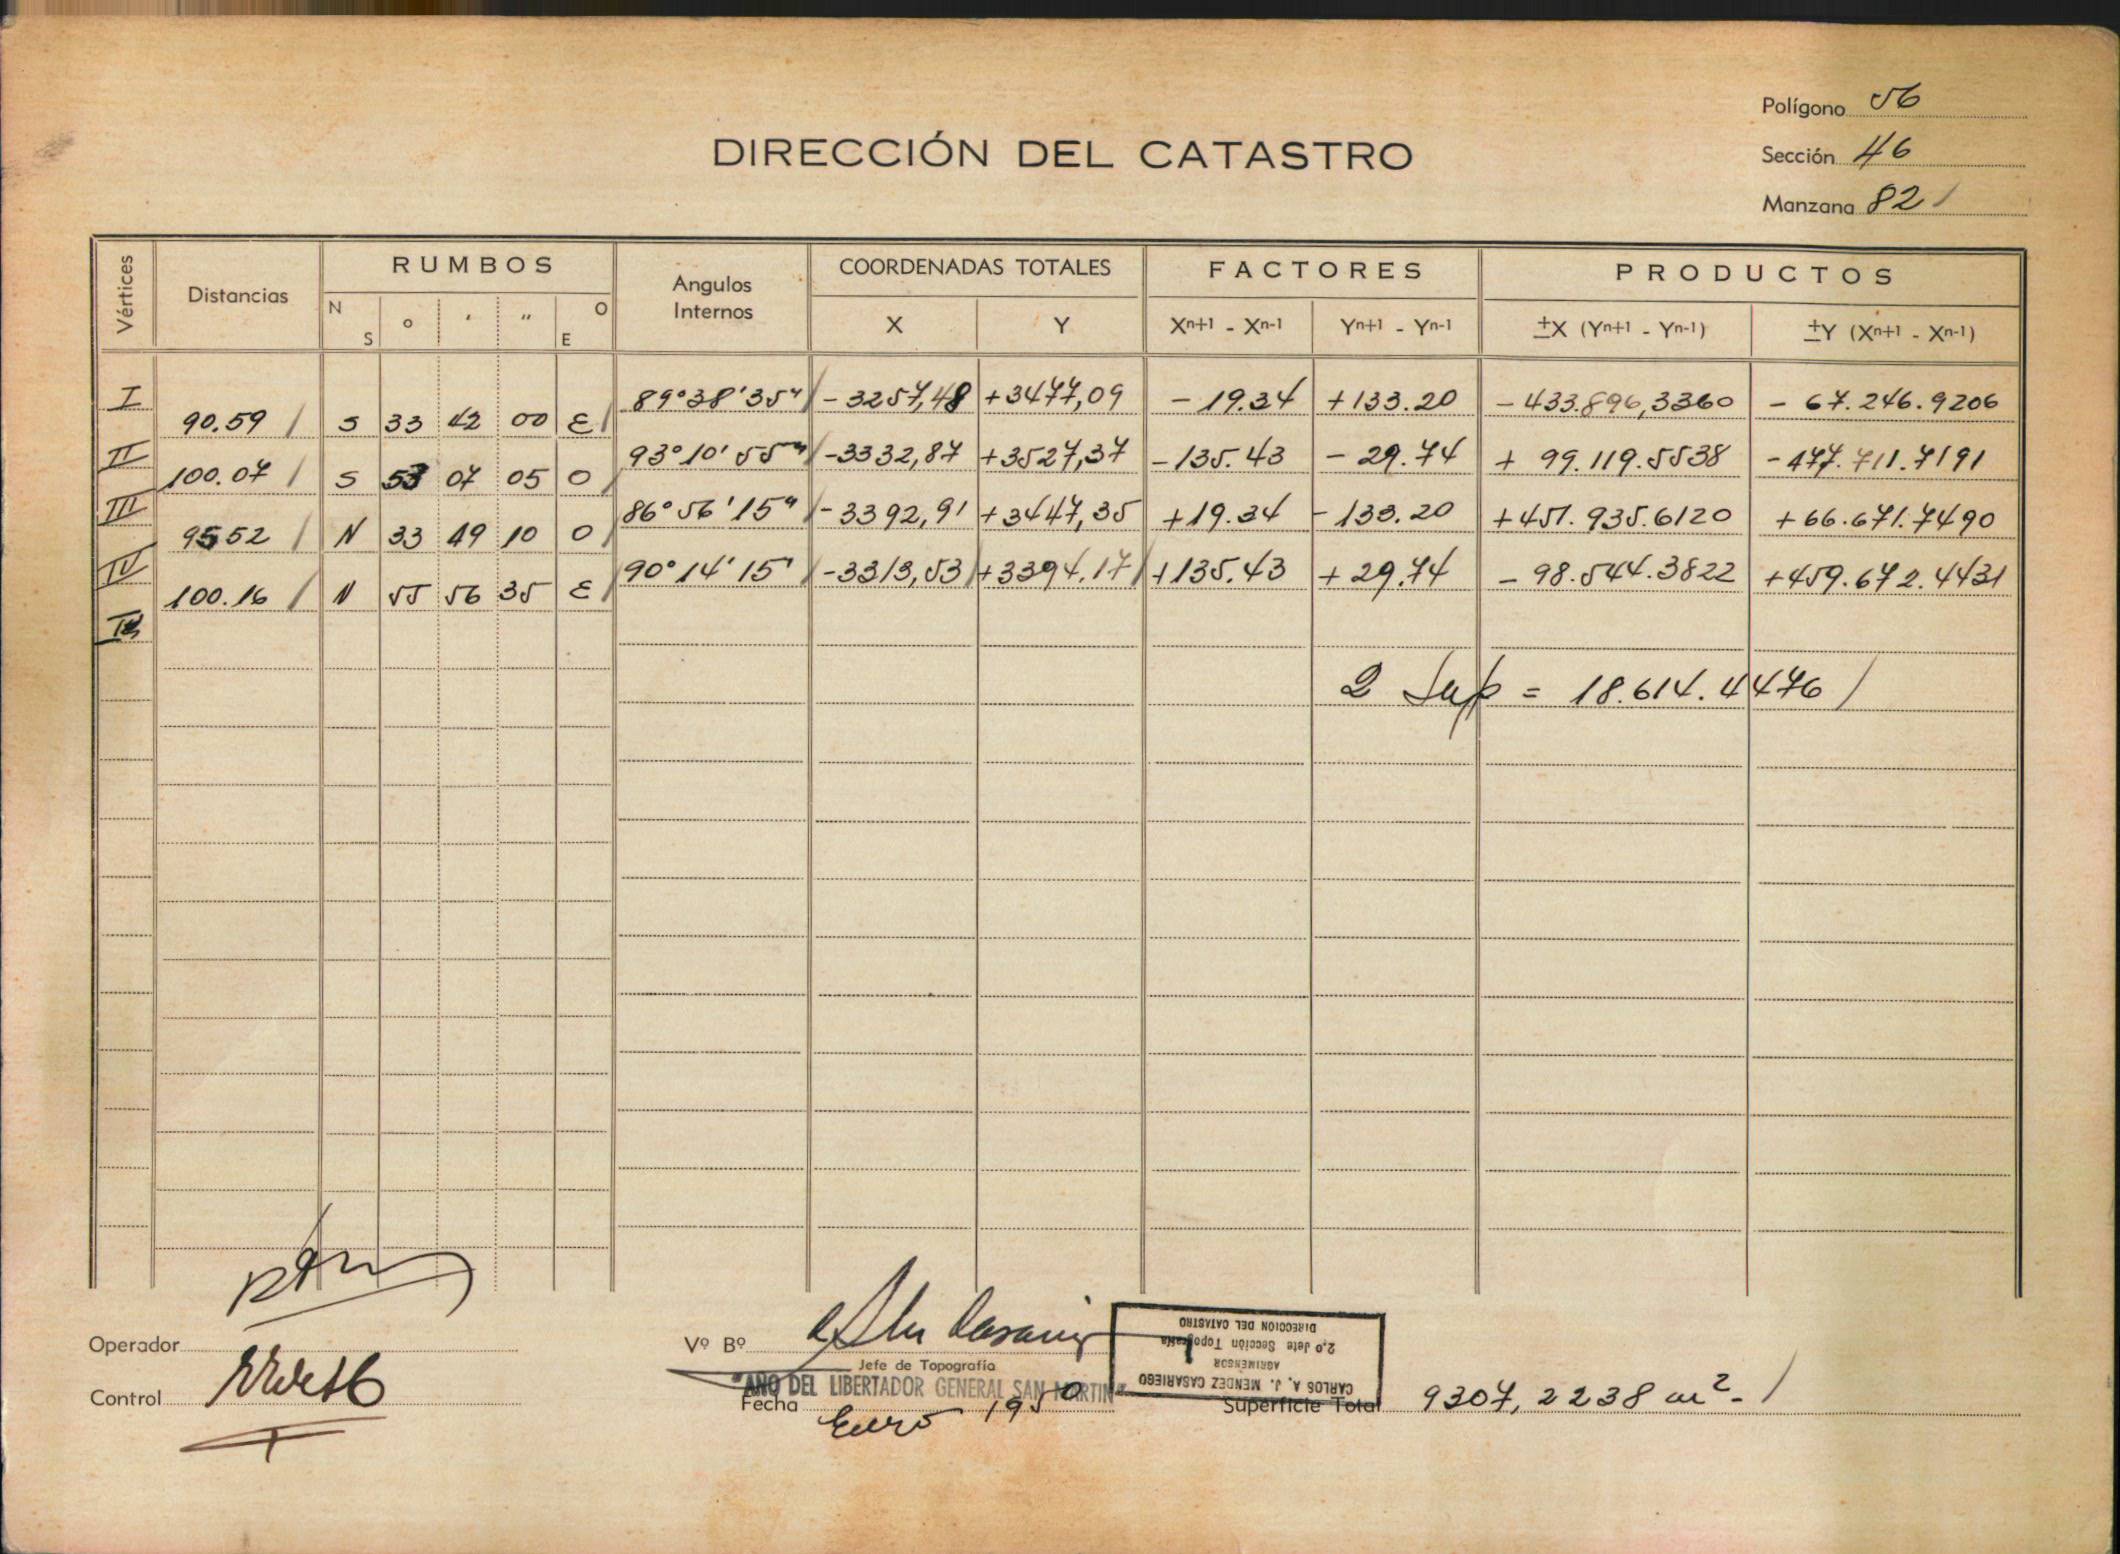 Polígono 56
DIRECCIÓN DEL CATASTRO
Sección 46
Manzana 82
Vértices Distancias RUMBOS N S ° ' " O E Angulos Internos COORDENADAS TOTALES X Y FACTORES Xn+1 - Xn-1 Yn+1 - Yn-1 PRODUCTOS ±X (Yn+1 - Yn-1) ±Y (Xn+1 - Xn-1)
I 89°38'35" -3257,48 +3477,09 -19.34 +133.20 -433.896,3360 -67.246.9206
90.59 S 33 42 00 E
II 93°10'55" -3332,87 +3527,37 -135.43 -29.74 +99.119.5538 -477.711.7191
100.07 S 53 07 05 O
III 86°56'15" -3392,91 +3447,35 +19.34 -133.20 +451.935.6120 +66.671.7490
95.52 N 33 49 10 O
IV 90°14'15" -3313,53 +3394.17 +135.43 +29.74 -98.544.3822 +459.672.4431
100.16 N 55 56 35 E
2 Sup = 18.614.4476
Operador
Control
Vº Bº
Jefe de Topografía
"AÑO DEL LIBERTADOR GENERAL SAN MARTIN"
Fecha Enero 1950
CARLOS A. J. MENDEZ CASARIEGO
AGRIMENSOR
2.º Jefe Sección Topografía
DIRECCION DEL CATASTRO
Superficie Total 9307,2238 m² -